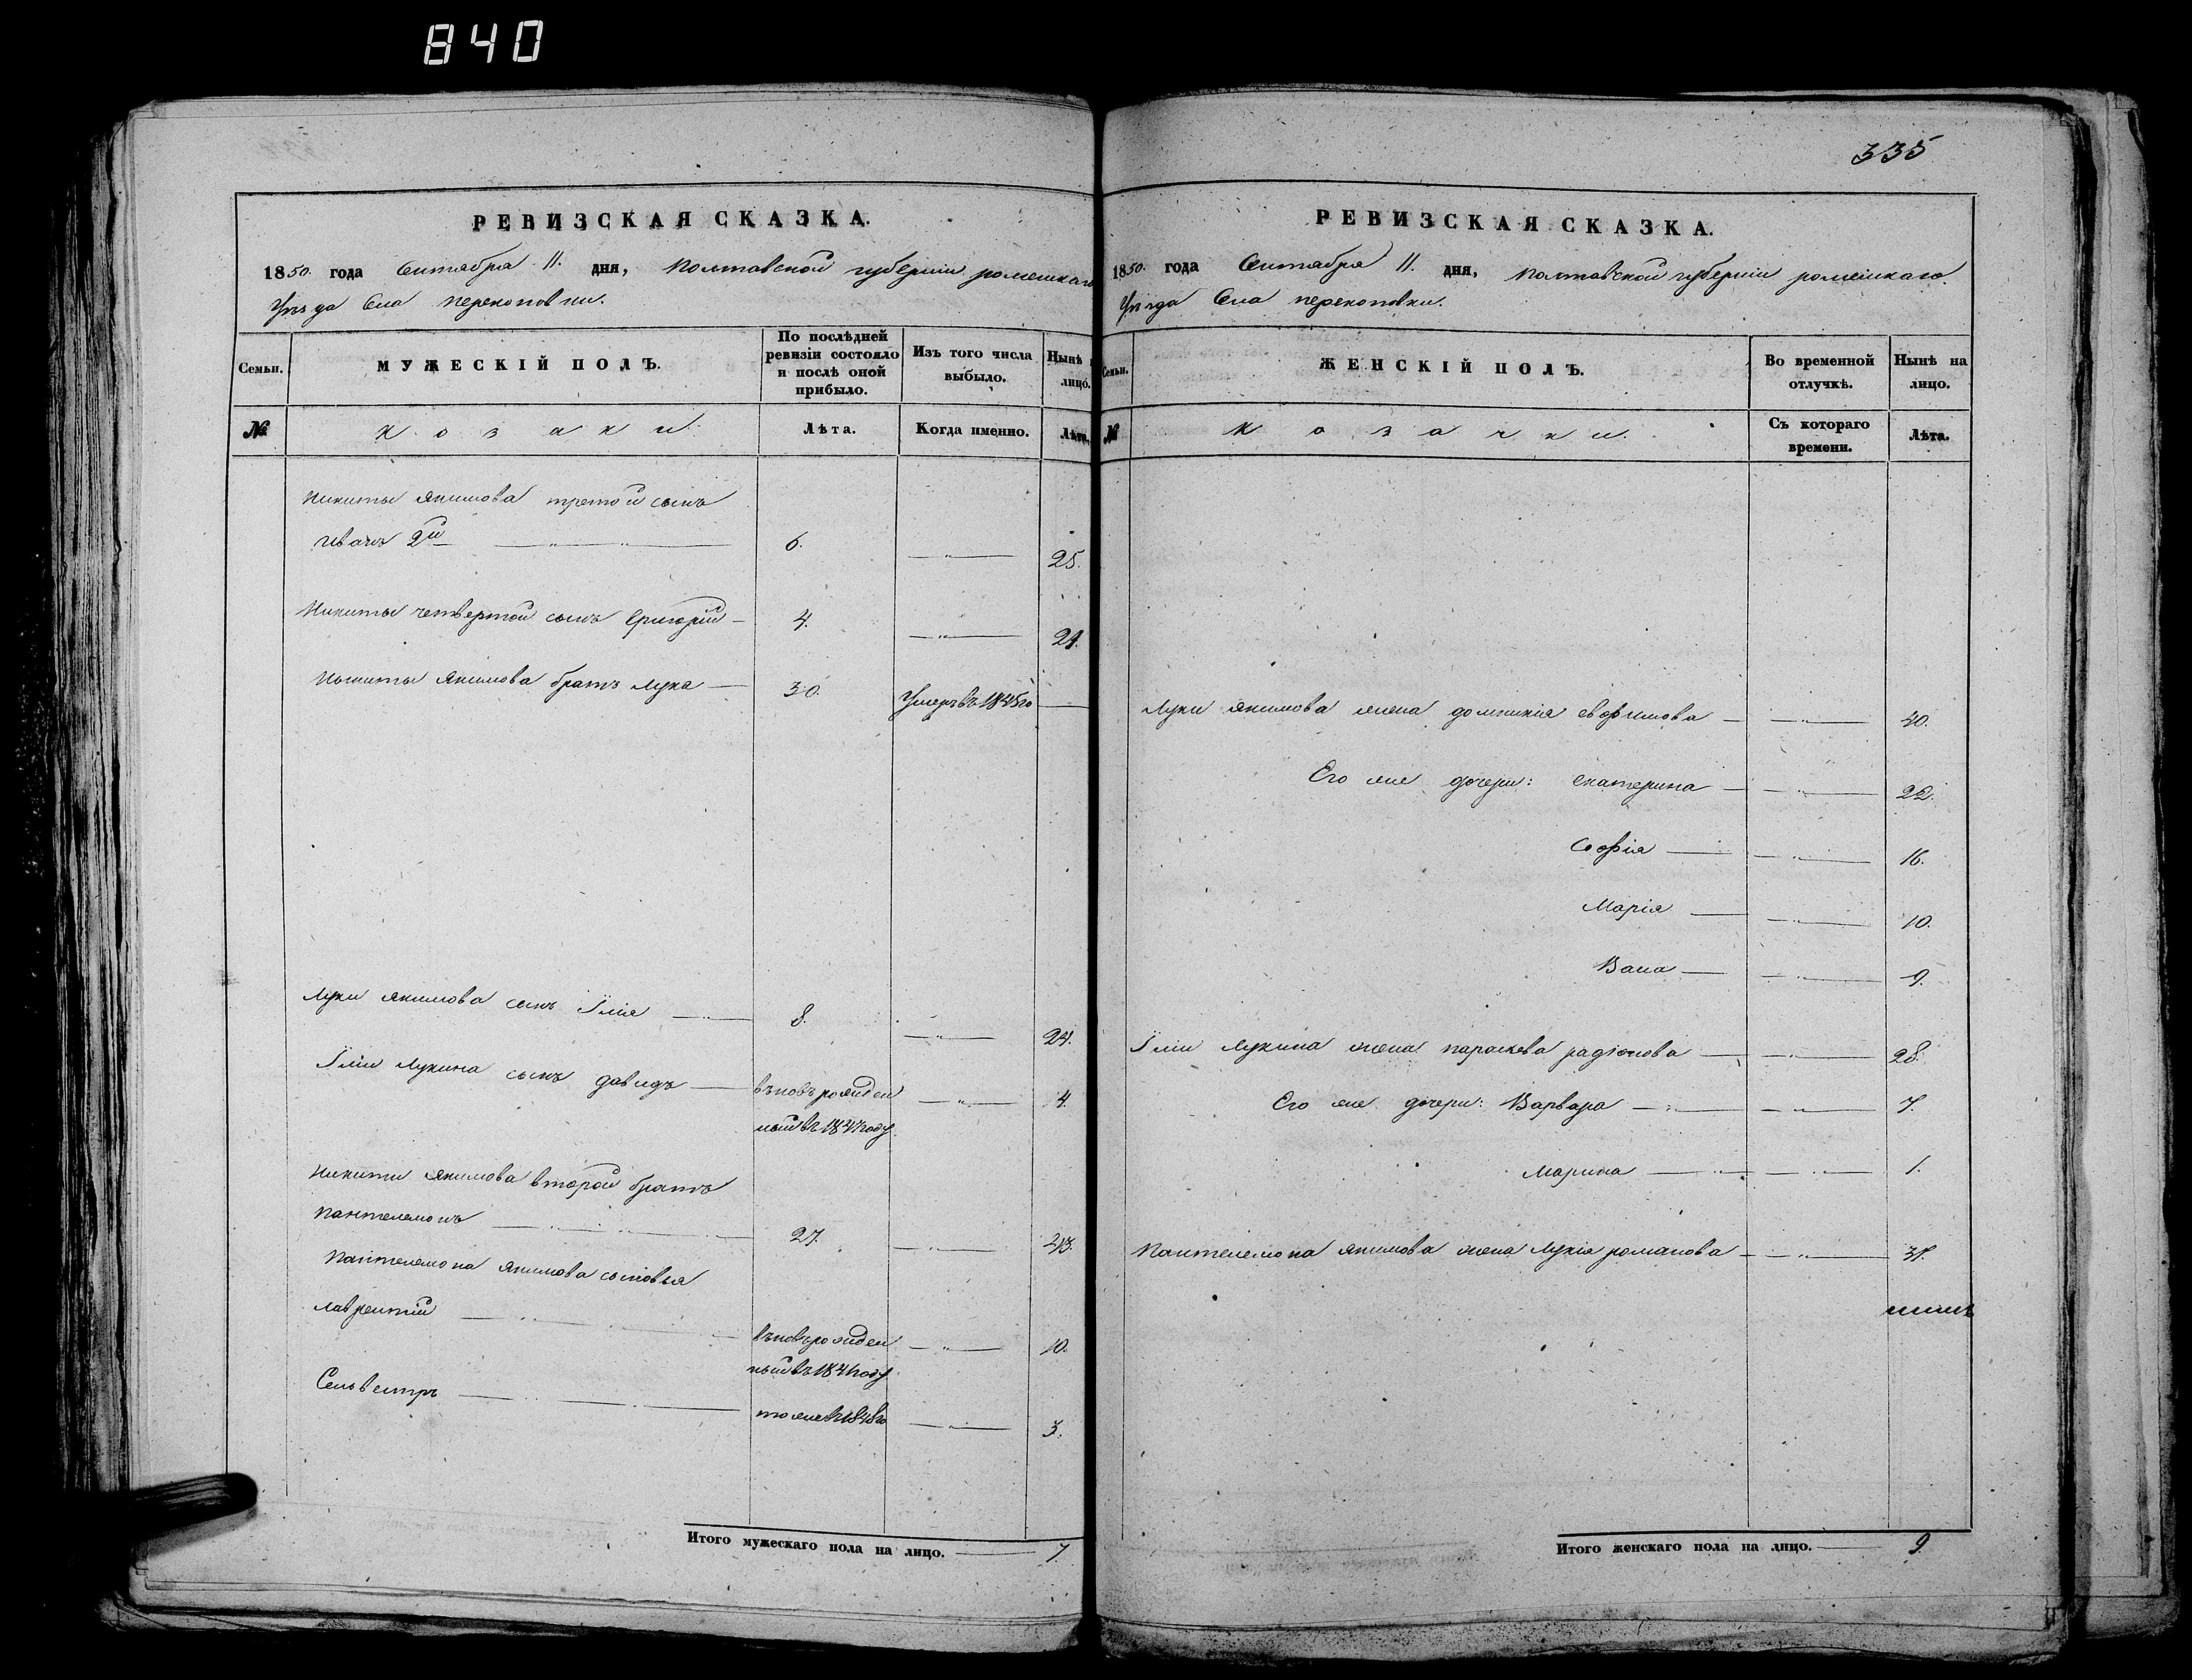 840
РЕВИЗСКАЯ СКАЗКА.
1850. года Сентября 11. дня, Полтавской губерніи роменскаго
Уезда Села перекоповки.
Семьи.
МУЖЕСКІЙ ПОЛЪ.
По послѣдней ревизіи состояло и послѣ оной прибыло.
Изъ того числа выбыло.
Нынѣ лицо.
№
Козаки
Лѣта.
Когда именно.
Лѣта.
Никиты Якимова третой сынъ
Иванъ 2й 6. 25.
Никиты четвертой сынъ Григорій 4. 21.
Никиты Якимова братъ Лука 30. Умеръ въ 1845го
Луки Якимова сынъ Іліа 8. 24.
Іліи Лукина сынъ давидъ вновь рожден 4.
ный въ 1847 году
Никити Якимова второй братъ
Пантелемонъ 27. 43.
Пантелемона Якимова сыновья
Лаврентій вновь рожден 10.
ный въ 1841 году
Сельвестръ тоже 1848го 3.
Итого мужескаго пола на лицо. 7
335
РЕВИЗСКАЯ СКАЗКА.
1850. года Сентября 11. дня, Полтавской губерніи роменскаго.
Уезда Села перекоповки.
Семьи.
ЖЕНСКІЙ ПОЛЪ.
Во временной отлучкѣ.
Нынѣ на лицо.
№
Козачки.
Съ котораго времени.
Лѣта.
Луки Якимова жена домникія евфимова 40.
Его же дочери: екатерина 22.
Софія 16.
Марія 10.
Васа 9.
Іліи Лукина жена параскева радіонова 28.
Его же дочери: Варвара 7.
Марина 1.
Пантелемона Якимова жена Лукія романова 31.
Итого женскаго пола на лицо. 9.